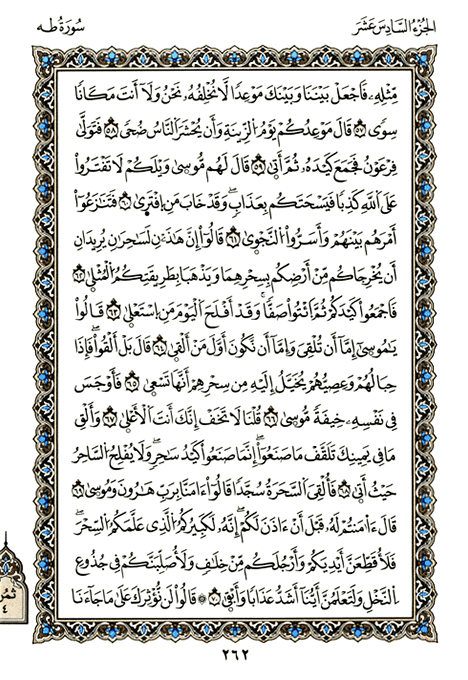 الجُزْءُ السَّادِسَ عَشَرَ
سُورَةُ طه
مِّثْلِهِۦ فَاجْعَلْ بَيْنَنَا وَبَيْنَكَ مَوْعِدًا لَّا نُخْلِفُهُۥ نَحْنُ وَلَآ أَنتَ مَكَانًا
سِوًى ٥٧ قَالَ مَوْعِدُكُمْ يَوْمُ الزِّينَةِ وَأَنْ يُّحْشَرَ النَّاسُ ضُحًى ٥٨ فَتَوَلَّىٰ
فِرْعَوْنُ فَجَمَعَ كَيْدَهُۥ ثُمَّ أَتَىٰ ٥٩ قَالَ لَهُم مُّوسَىٰ وَيْلَكُمْ لَا تَفْتَرُوا
عَلَى اللَّهِ كَذِبًا فَيَسْحَتَكُم بِعَذَابٍ وَقَدْ خَابَ مَنِ افْتَرَىٰ ٦٠ فَتَنَازَعُوٓا
أَمْرَهُم بَيْنَهُمْ وَأَسَرُّوا النَّجْوَىٰ ٦١ قَالُوٓا إِنَّ هَٰذَٰنِ لَسَٰحِرَٰنِ يُرِيدَانِ
أَن يُخْرِجَاكُم مِّنْ أَرْضِكُم بِسِحْرِهِمَا وَيَذْهَبَا بِطَرِيقَتِكُمُ الْمُثْلَىٰ ٦٢
فَأَجْمِعُوا كَيْدَكُمْ ثُمَّ ائْتُوا صَفًّا وَقَدْ أَفْلَحَ الْيَوْمَ مَنِ اسْتَعْلَىٰ ٦٣ قَالُوا
يَٰمُوسَىٰٓ إِمَّآ أَن تُلْقِيَ وَإِمَّآ أَن نَّكُونَ أَوَّلَ مَنْ أَلْقَىٰ ٦٤ قَالَ بَلْ أَلْقُوا فَإِذَا
حِبَالُهُمْ وَعِصِيُّهُمْ يُخَيَّلُ إِلَيْهِ مِن سِحْرِهِمْ أَنَّهَا تَسْعَىٰ ٦٥ فَأَوْجَسَ
فِي نَفْسِهِۦ خِيفَةً مُّوسَىٰ ٦٦ قُلْنَا لَا تَخَفْ إِنَّكَ أَنتَ الْأَعْلَىٰ ٦٧ وَأَلْقِ
مَا فِي يَمِينِكَ تَلَقَّفْ مَا صَنَعُوٓا إِنَّمَا صَنَعُوا كَيْدُ سَٰحِرٍ وَلَا يُفْلِحُ السَّاحِرُ
حَيْثُ أَتَىٰ ٦٨ فَأُلْقِيَ السَّحَرَةُ سُجَّدًا قَالُوٓا ءَامَنَّا بِرَبِّ هَٰرُونَ وَمُوسَىٰ ٦٩
قَالَ ءَا۬مَنتُمْ لَهُۥ قَبْلَ أَنْ ءَاذَنَ لَكُمْ إِنَّهُۥ لَكَبِيرُكُمُ الَّذِي عَلَّمَكُمُ السِّحْرَ
فَلَأُقَطِّعَنَّ أَيْدِيَكُمْ وَأَرْجُلَكُم مِّنْ خِلَٰفٍ وَلَأُصَلِّبَنَّكُمْ فِي جُذُوعِ
النَّخْلِ وَلَتَعْلَمُنَّ أَيُّنَآ أَشَدُّ عَذَابًا وَأَبْقَىٰ ٧٠ ۞ قَالُوا لَن نُّؤْثِرَكَ عَلَىٰ مَا جَآءَنَا
ثُمُن
٤
٢٦٢